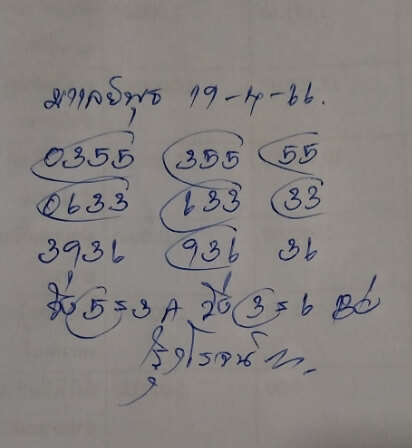 มาเลย์พุธ 19-4-66.
0355 355 55
0633 633 33
3936 936 36
วิ่ง 5 = 3 A วิ่ง 3 = 6
รุ่งโรจน์